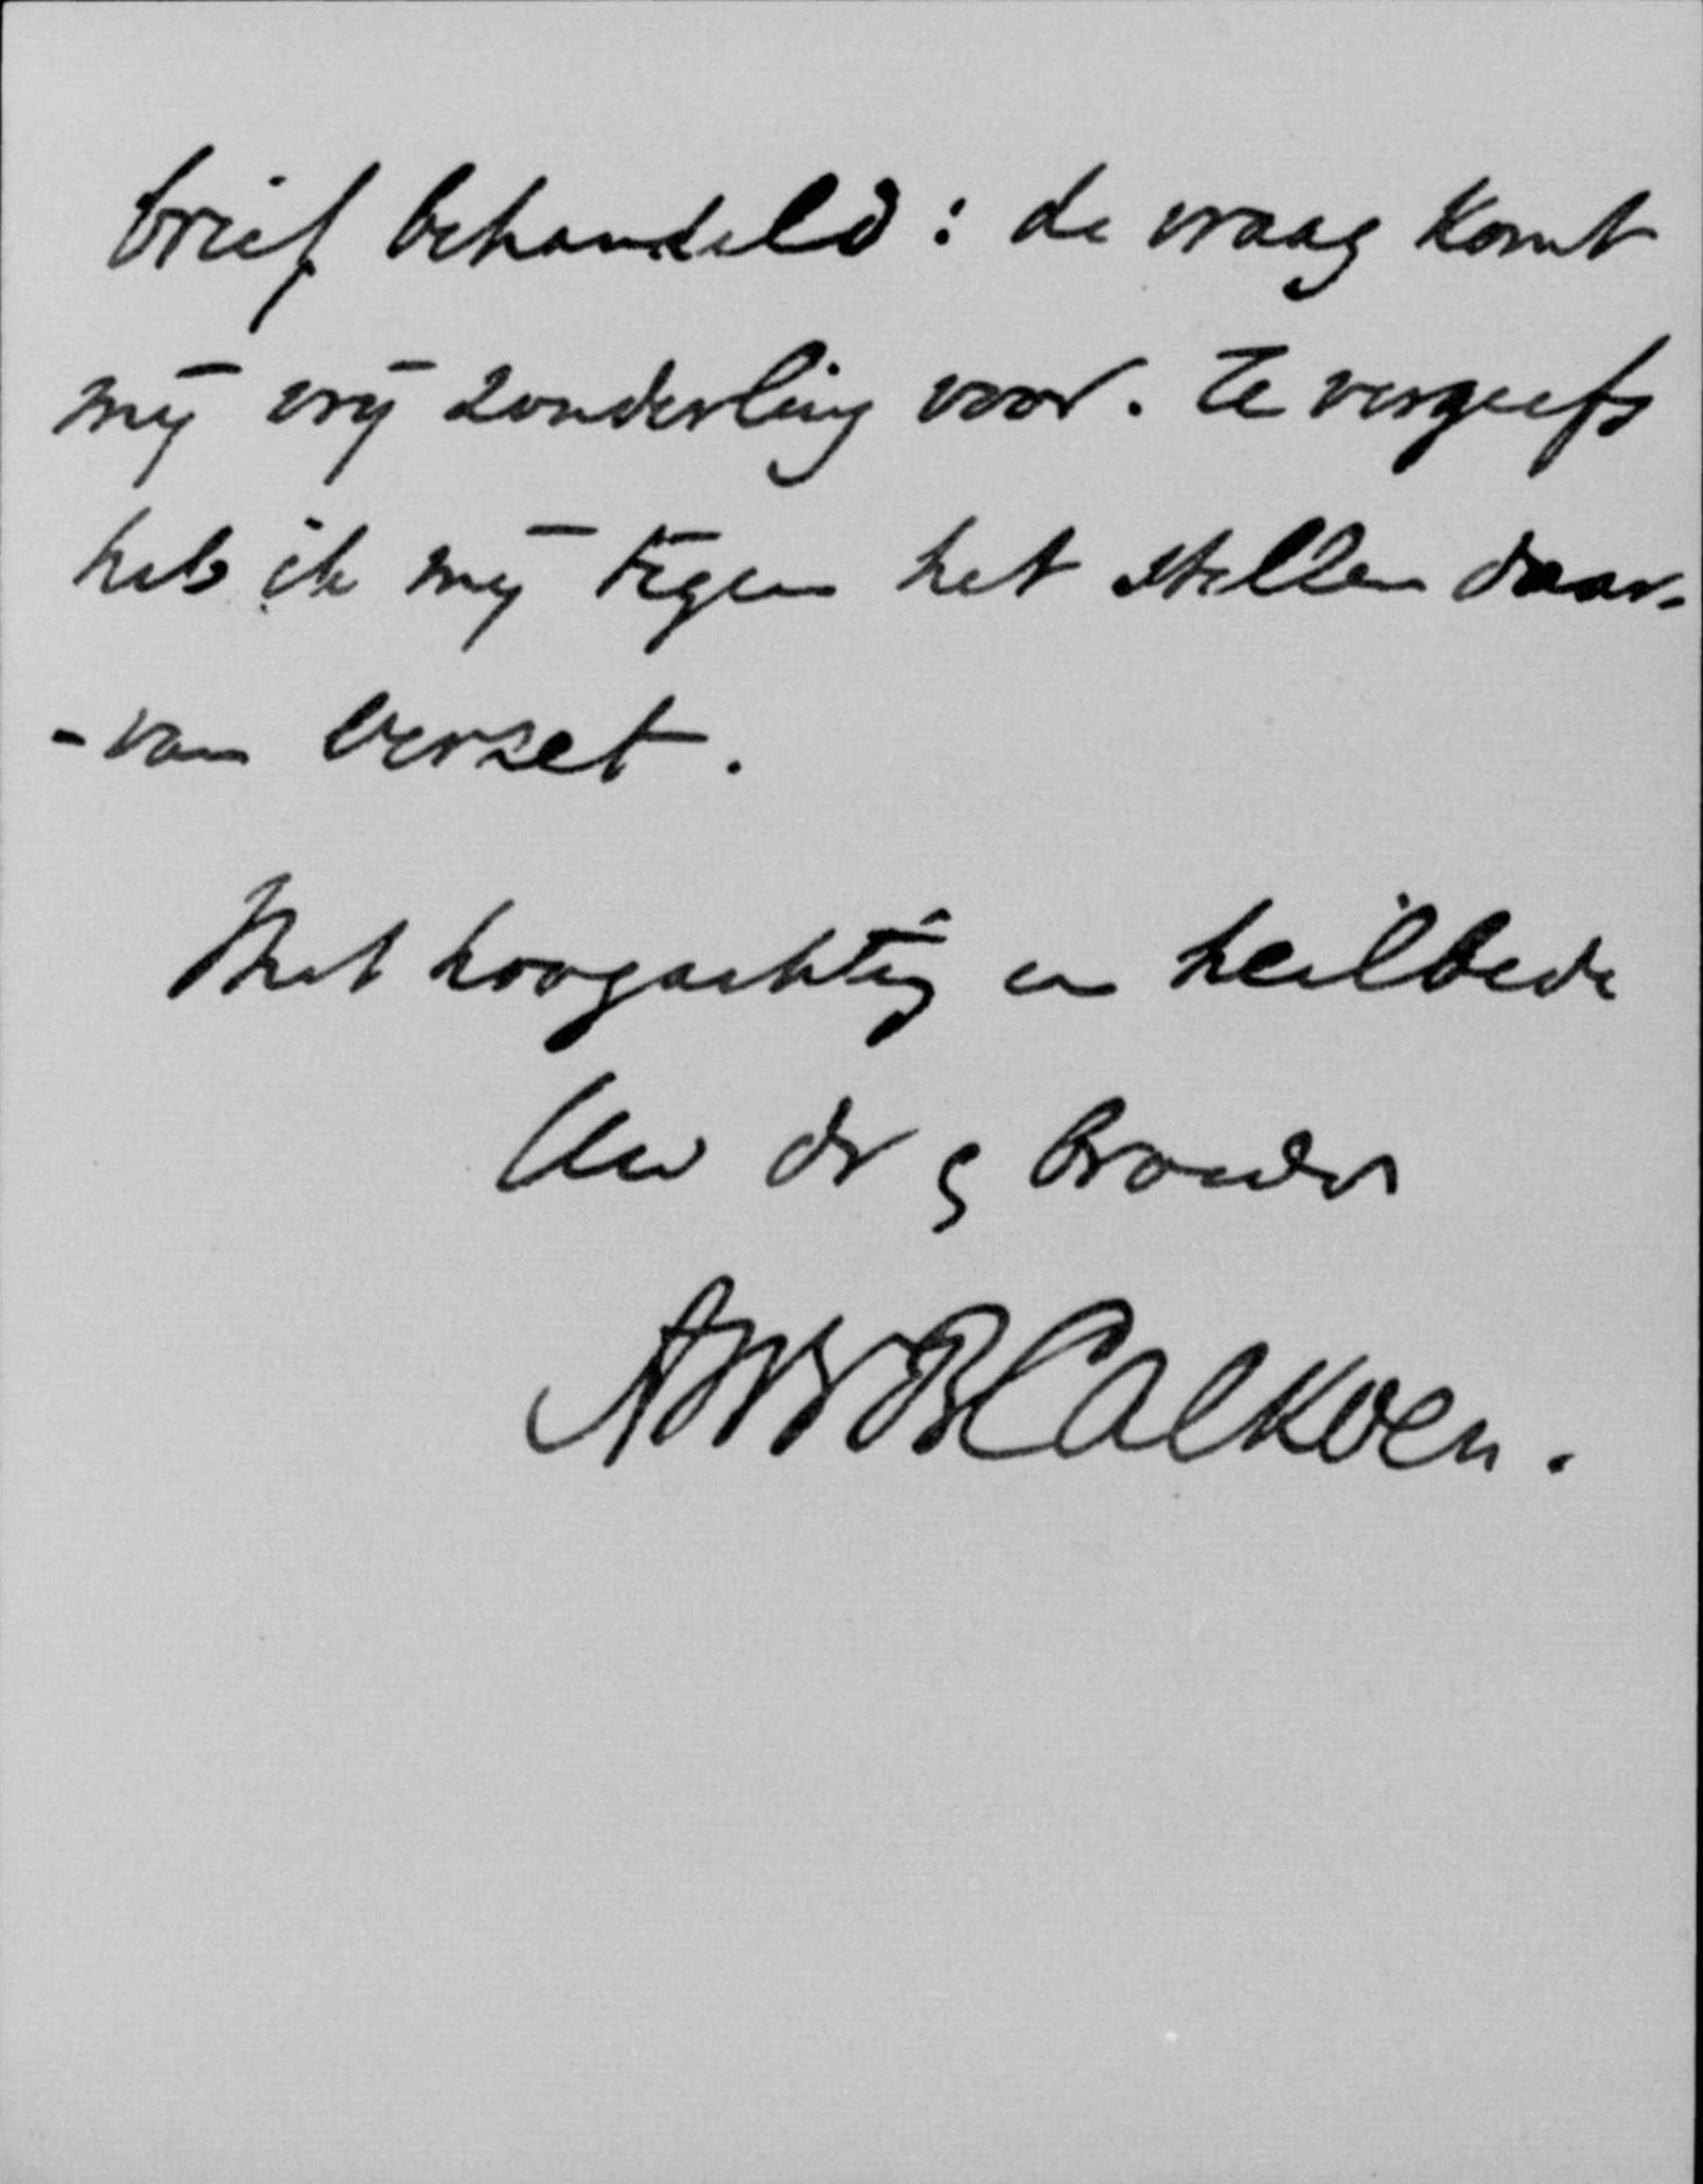 brief behandeld : de vraag komt
mij vrij zonderling voor. Te vergeefs
heb ik mij tegen het stellen daar-
-van verzet.
Met hoogachtig en heilbede
Uw dr g broeder
Calkoen.